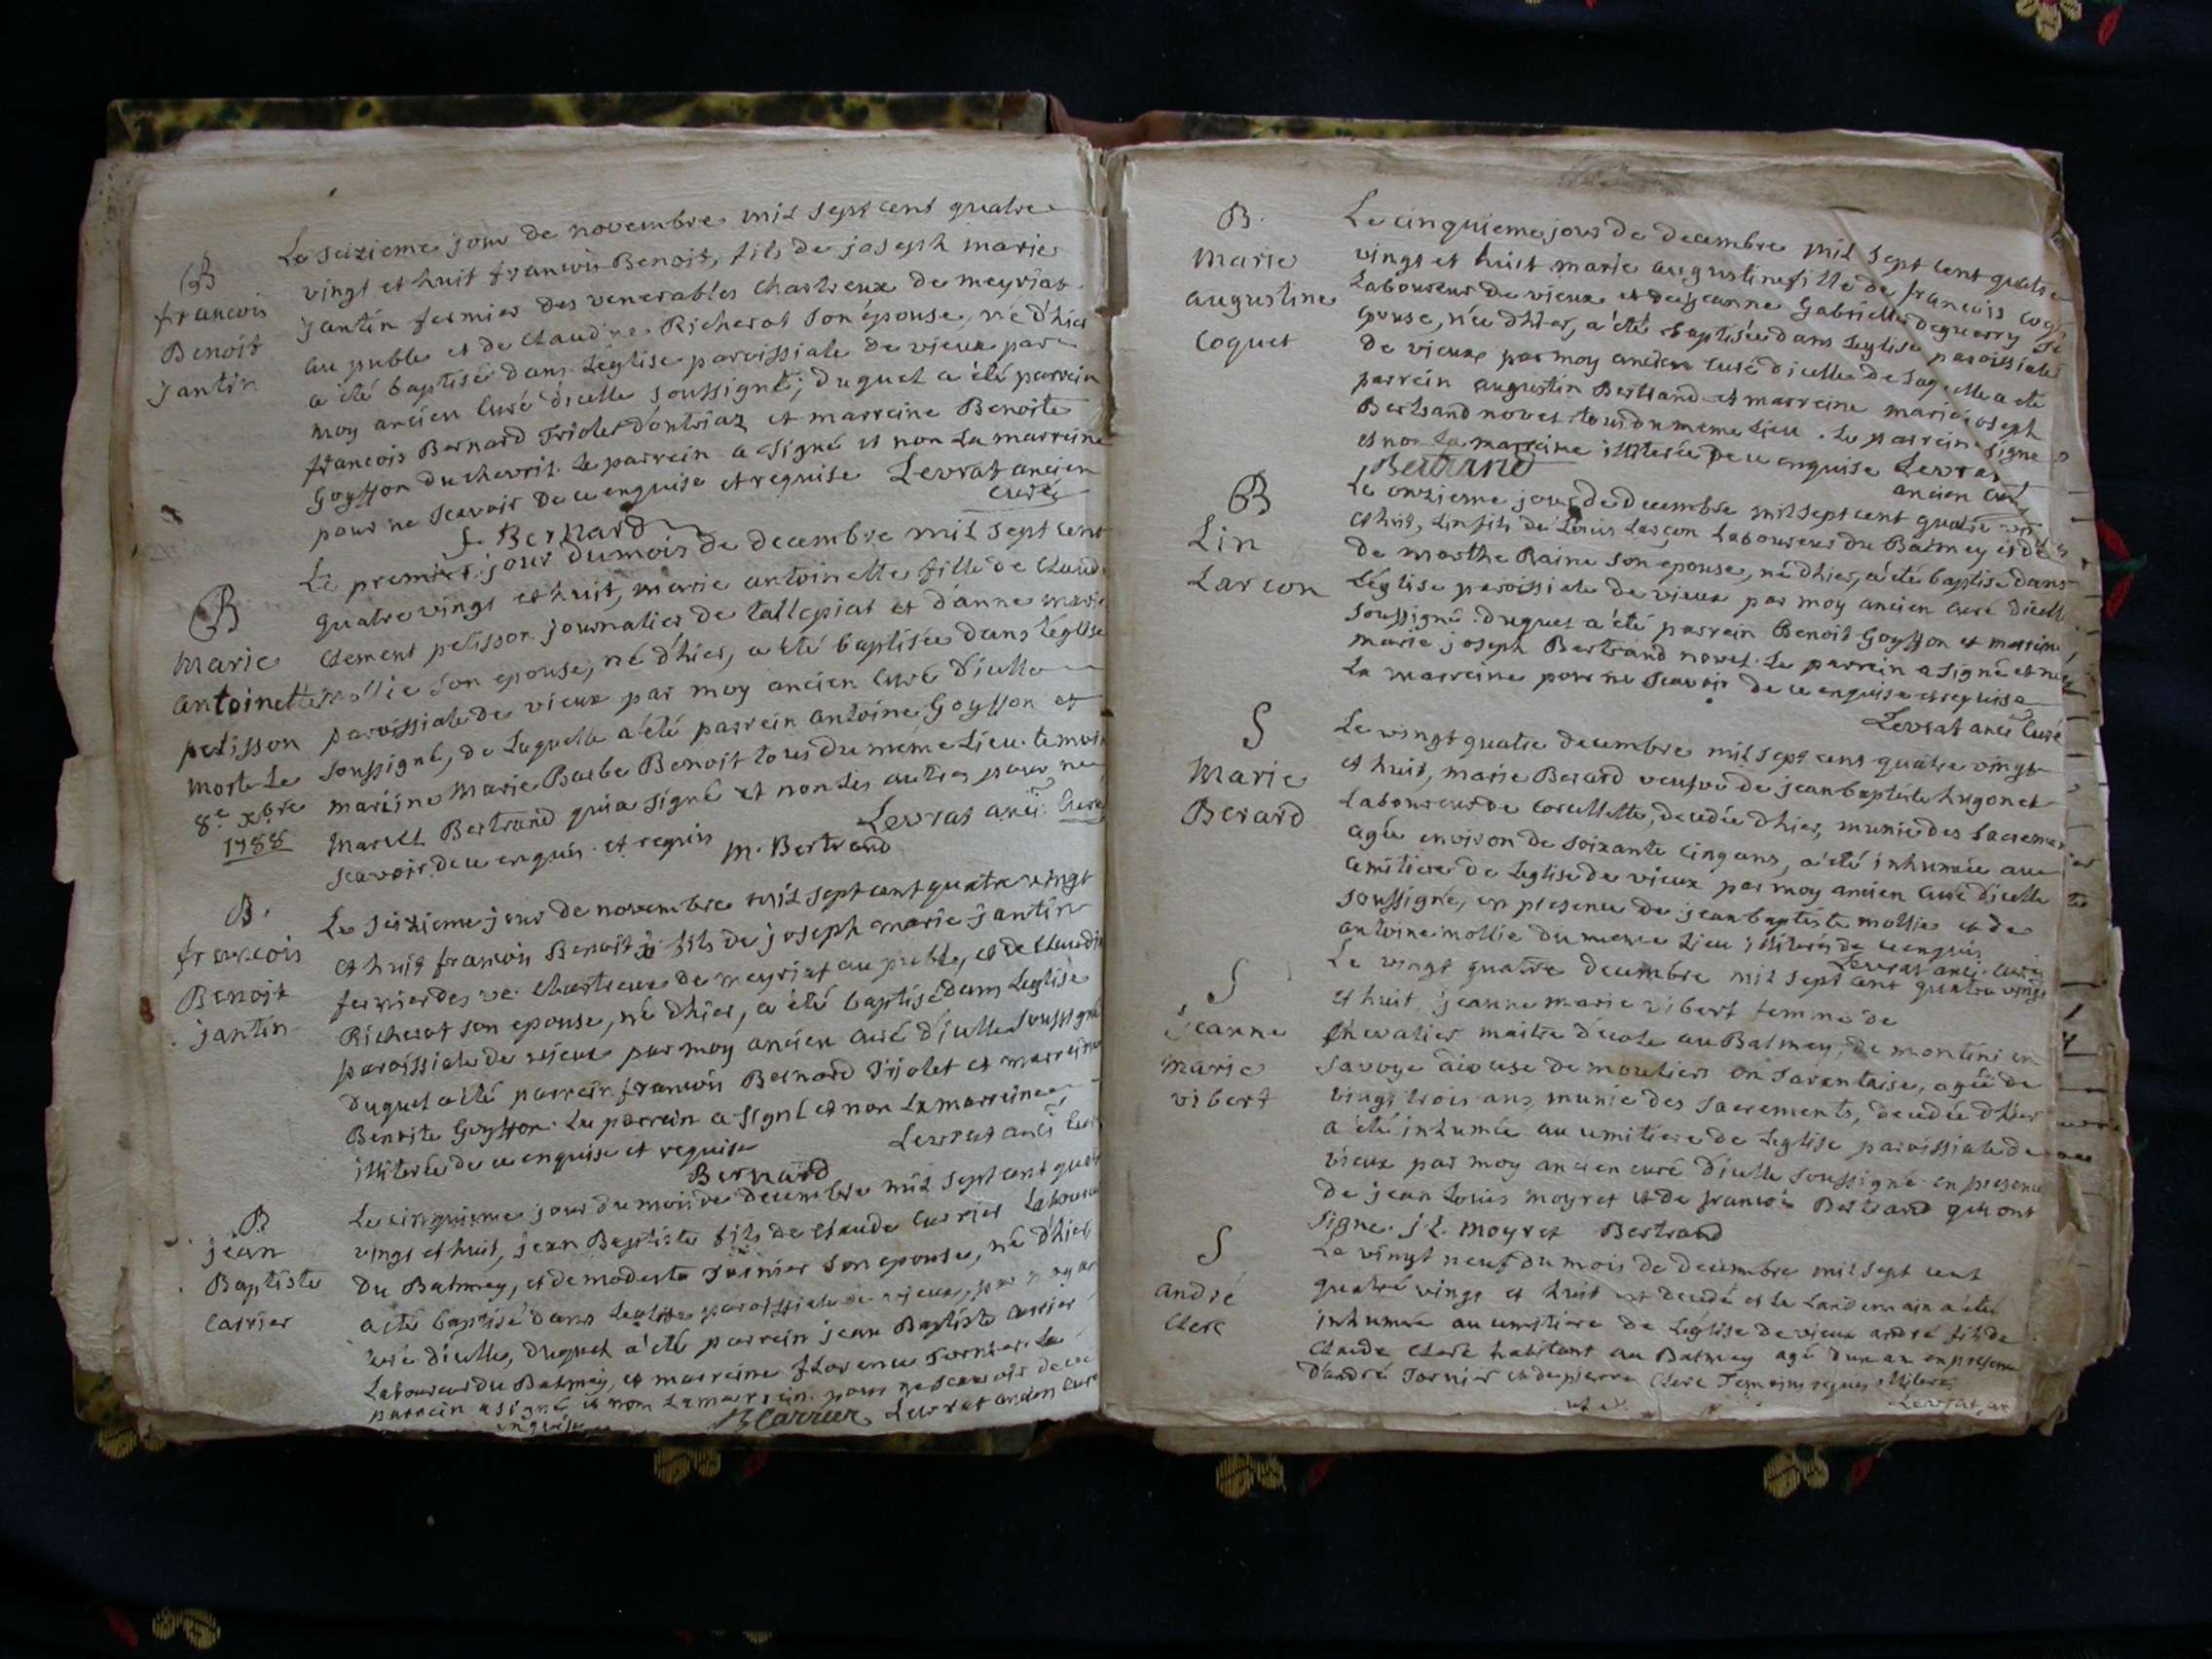 B
francois
Benoit
jantin
Le seizieme jour de novembre mil sept cent quatre
vingt et huit francois Benoit, fils de joseph marie
jantin fermier des venerables chartreux de meyriat
au puble et de Claudine Richerot son épouse, né d'hier
a été baptisé dans Leglise paroissiale de vieux par
moy ancien Curé d'icelle soussigné; duquel a été parrein
francois Bernard Triolet d'ontriaz et marreine Benoite
Goyffon du chevril. Le parrein a signé et non La marreine
pour ne scavoir de ce enquise et requise Levrat ancien
curé
f. Bernard
B
Marie
antoinette
pelisson
morte Le
8e xbre
1788
Le premier jour du mois de decembre mil sept cent
quatre vingt et huit, marie antoinette fille de Claude
Clement pelisson journalier de tallepiat et d'anne marie
mollie son epouse, né d'hier, a été baptisée dans Léglise
paroissiale de vieux par moy ancien Curé d'icelle
soussigné, de Laquelle a été parrein antoine Goyffon et
mareine Marie Barbe Benoit tous du meme Lieu. temoin
Marcel Bertrand qui a signé et non Les autres pour ne
scavoir de ce enquis et requis Levrat anci. Curé
m. Bertrand
B.
francois
Benoit
jantin
Le seizieme jour de novembre mil sept cent quatre vingt
et huit francois Benoit fils de joseph marie jantin
fermier des ve. chartreux de meyriat au puble, et de Claudine
Richerot son epouse, né d'hier, a été baptisé dans Leglise
paroissiale de vieux par moy ancien curé d'icelle soussigné
duquel a été parrein francois Bernard Trjolet et marreine
Benoite Goyffon. Le parrein a signé et non La marreine
illiterée de ce enquise et requise Levrat anci curé
Bernard
B
jean
Baptiste
Carrier
Le cinquieme jour du mois de decembre mil sept cent quatre
vingt et huit, jean Baptiste fils de Claude Carrier Laboureur
du Balmey, et de modeste Tornier son epouse, né d'hier,
a été baptisé dans Leglise paroissiale de vieux, par moy an
curé d'icelle, duquel a été parrein jean Baptiste Carrier
Laboureur du Balmey, et marreine florence Tornier. Le
parrein a signé et non La marrein. pour ne scavoir de ce
enquise BCarrier Levrat ancien Curé
B.
Marie
augustine
Coquet
Le cinquieme jour de decembre mil sept cent quatre
vingt et huit marie augustine fille de francois coq
Laboureur de vieux et de jeanne Gabrielle deguerry so
epouse, née d'hier, a été baptisée dans Leglise paroissiale
de vieux par moy ancien Curé d'icelle de Laquelle a ete
parrein augustin Bertrand et marreine marie joseph
Bertrand novet tous du meme Lieu. Le parrein signe
et non La marreine illiterée de ce enquise Levrat
Bertrand
ancien curé
B
Lin
Larcon
Le onzieme jour de decembre mil sept cent quatre vingt
et huit, Lin fils de Louis Larçon Laboureur du Balmey et de
de marthe Raine son epouse, né d'hier, a été baptisé dans
Léglise paroissiale de vieux par moy ancien curé d'icelle
soussigné. Duquel a été parrein Benoit Goyffon et marreine
marie joseph Bertrand novet. Le parrein a signé et non
La marreine pour ne scavoir de ce enquise et requise
Levrat anci Curé
S
Marie
Berard
Le vingt quatre decembre mil sept cent quatre vingt
et huit, marie Berard veufve de jean baptiste hugonet
Laboureur de corcellette, decedée d'hier, munie des sacremen
agée environ de soixante cinq ans, a été inhumée au
cemitiere de Leglise de vieux par moy ancien curé d'icelle
soussigné, en presence de jean baptiste mollie et de
antoine mollie du meme Lieu illiterés de ce enquis
Levrat anci. curé
S
jeanne
marie
vibert
Le vingt quatre decembre mil sept cent quatre vingt
et huit jeanne marie vibert femme de
chevalier maitre d'ecole au Balmey, de montini en
savoye dioceuse de moutiers en Tarentaise, agée de
vingt trois ans, munie des sacrements, decedée d'hier
a été inhumée au cemitiere de Leglise paroissiale de
vieux par moy ancien curé d'icelle soussigné en presence
de jean Louis moyret et de francois Bertrand qui ont
signe. j. L. moyret Bertrand
S
andré
Clerc
Le vingt neuf du mois de decembre mil sept cent
quatre vingt et huit est decedé et Le Landemain a été
inhumée au cemitiere de Léglise de vieux andré fils de
Claude Clerc habitant au Balmey agé d'un an en presence
d'andré Tornier et de pierre Clerc Temoins requis illiteré
Levrat an